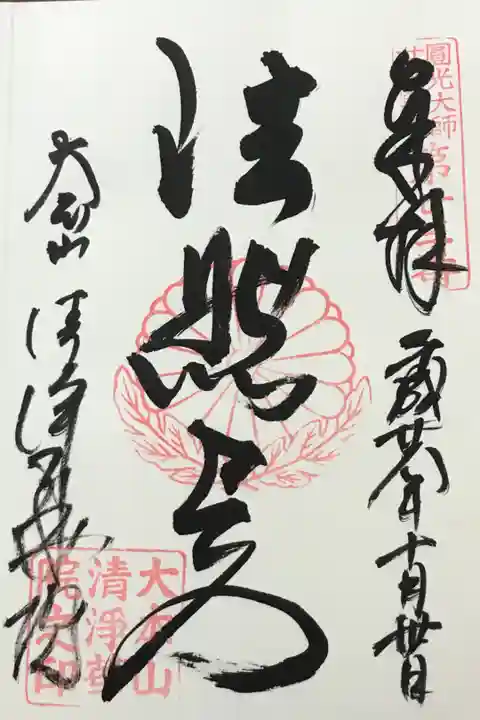 圓光大師
第廿三番
奉拝
十月丗日
法然上人
大本山
清浄華院
大本山
清淨華
院之印